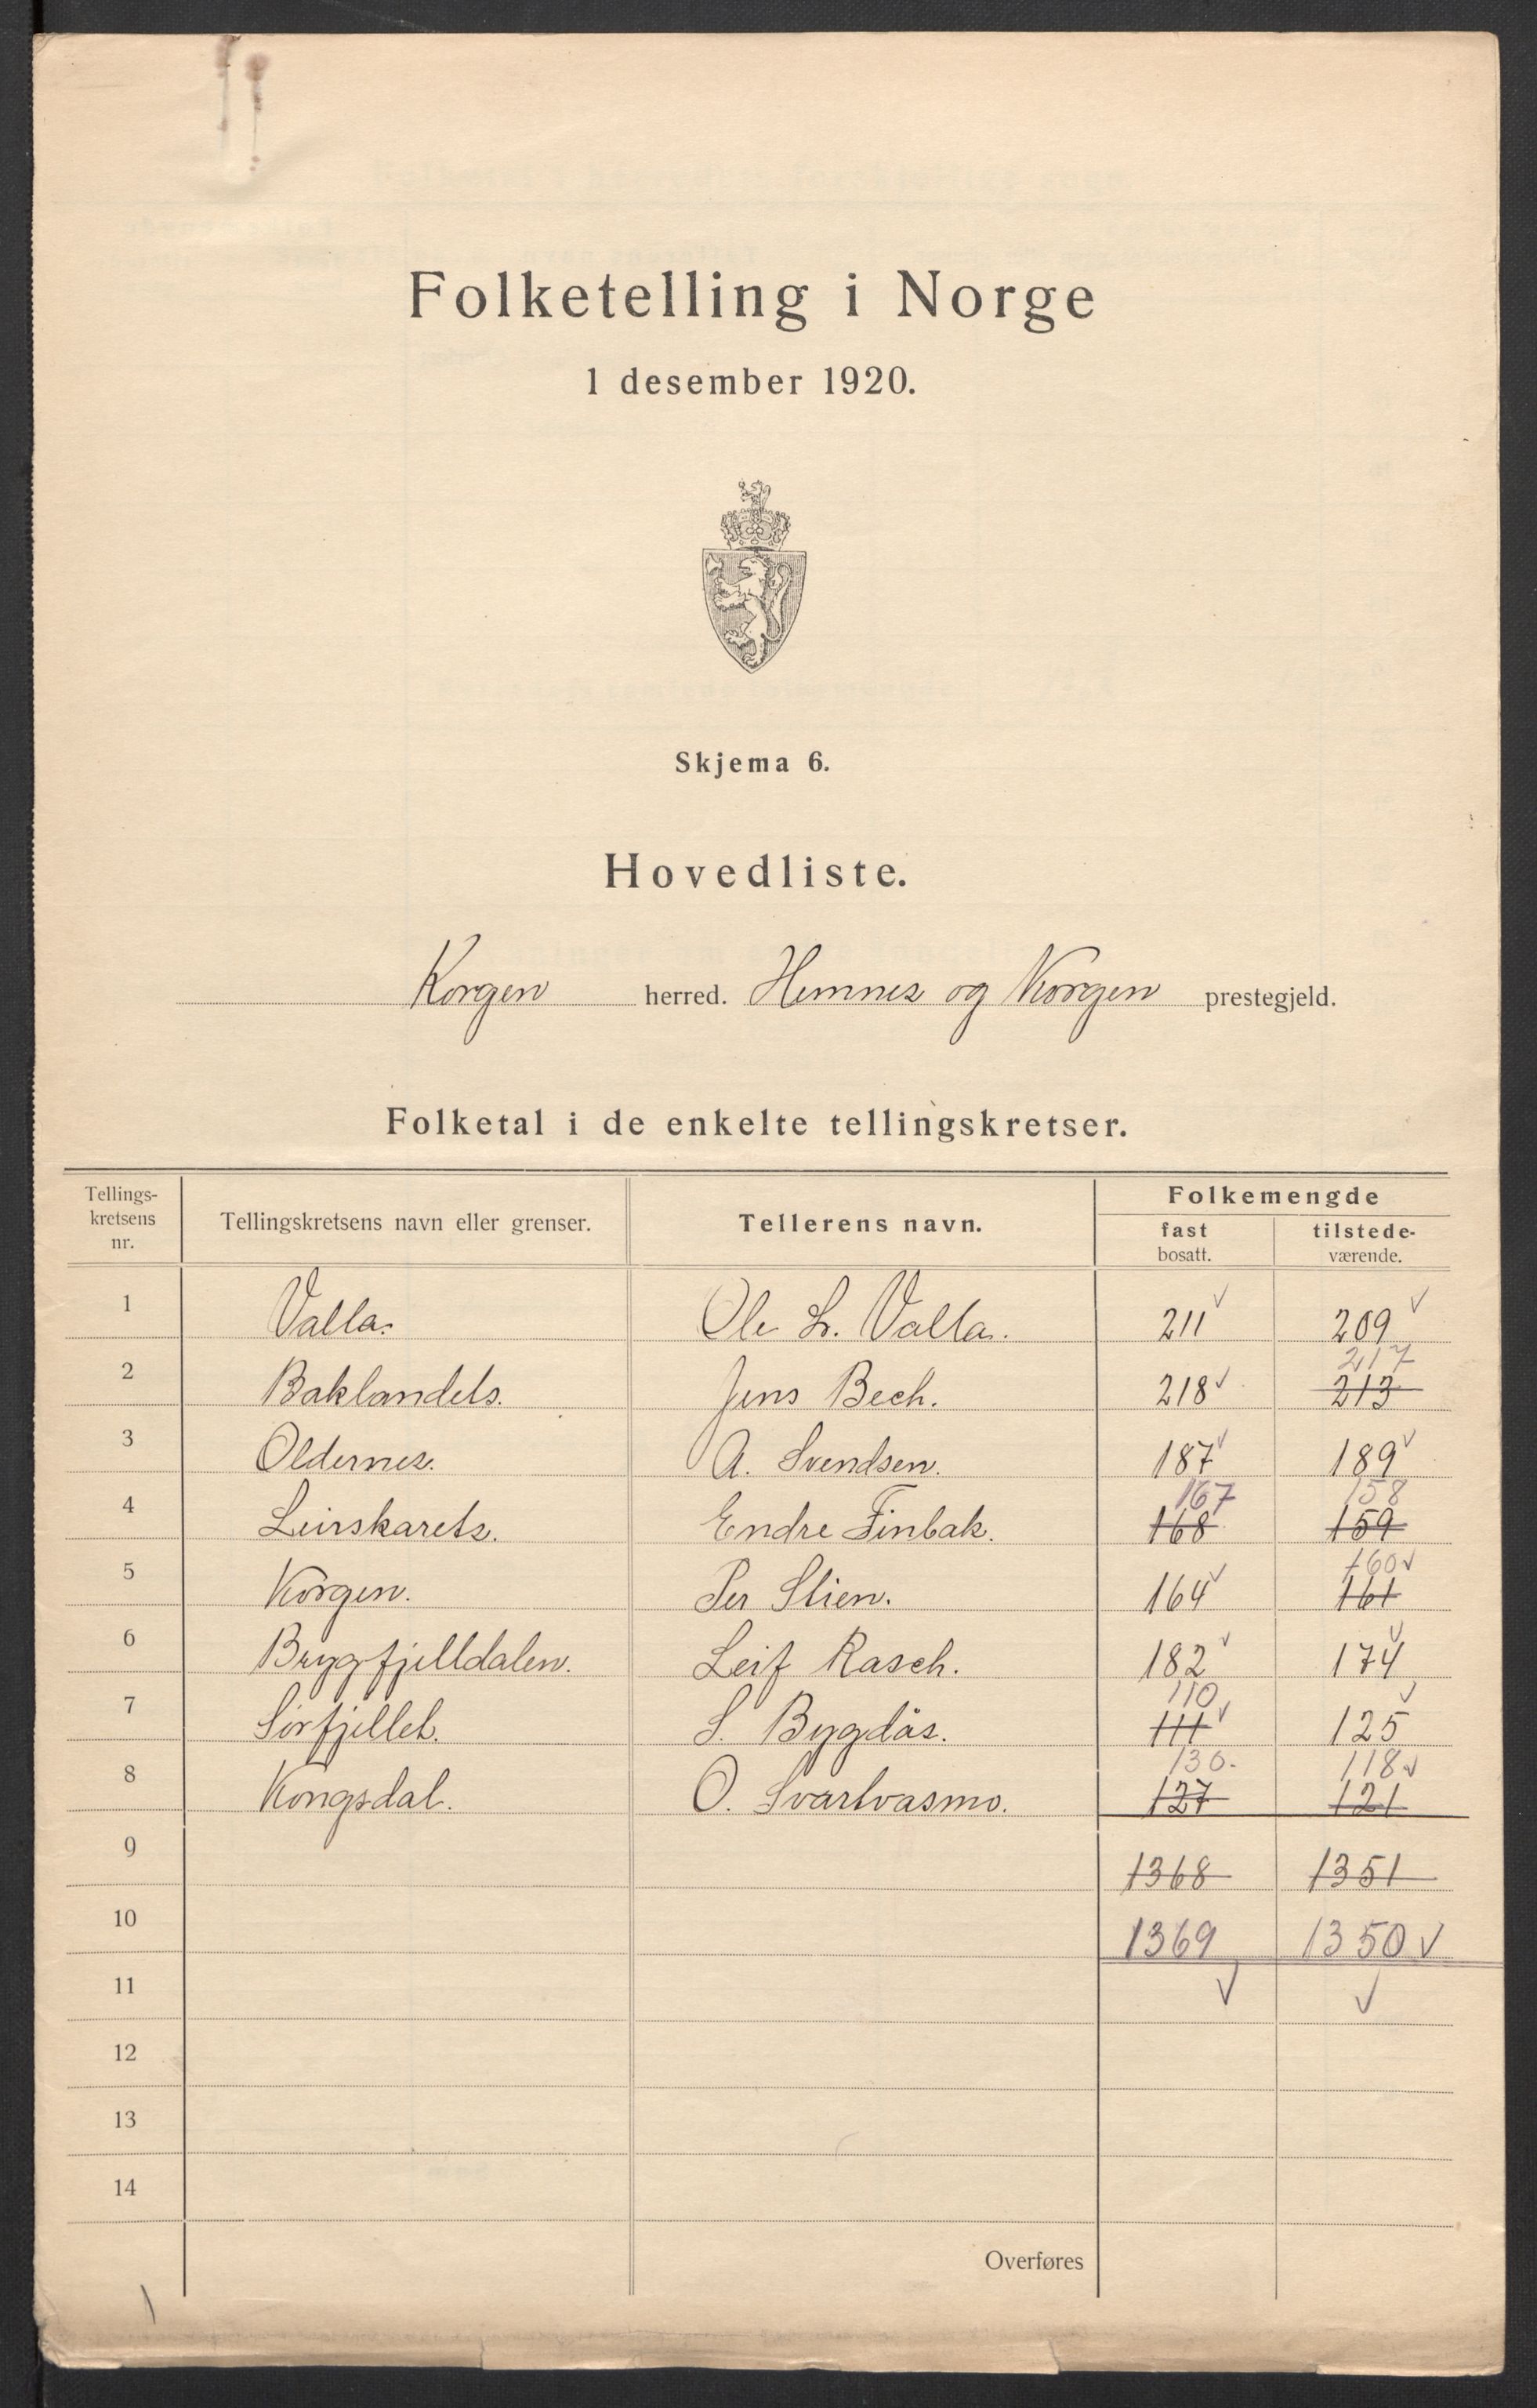 Folketelling i Norge
1 desember 1920.
Skjema 6.
Hovedliste.
Korgen herred. Hemnes og Korgen prestegjeld.
Folketal i de enkelte tellingskretser.
Tellings-kretsens nr. Tellingskretsens navn eller grenser. Tellerens navn. Folkemengde
fast bosatt. tilstede-værende.
1 Valla. Ole L. Valla. 211 209
217
2 Baklandets. Jens Bech. 218 213
3 Oldernes. A. Svendsen. 187 189
167 158
4 Leirskarets. Endre Finbak. 168 159
160
5 Korgen. Per Stien. 164 161
6 Brygfjelldalen. Leif Rasch. 182 174
110
7 Sørfjellet. S. Bygdås. 111 125
130. 118
8 Kongsdal. O. Svartvasmo. 127 121
9 1368 1351
10 1369 1350
11
12
13
14
Overføres